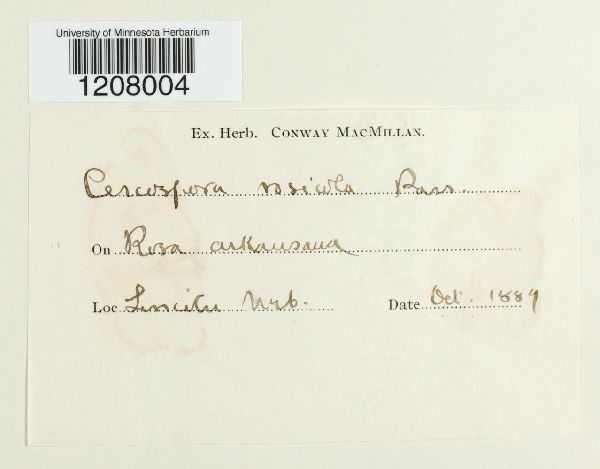 University of Minnesota Herbarium
1208004
Ex. Herb. Conway MacMillan.
Cercospora rosicola Pass.
On Rosa arkansana
Loc Lincoln Neb. Date Oct. 1889